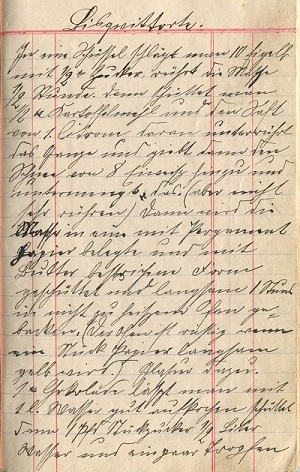 Bisquittorte.
In eine Schüssel schlägt man 10 Eigelb
mit Zucker, rührt die Masse
1/2 Stunde. dann schüttet man
Kartoffelmehl und den Saft
von 1 Citrone daran unterrührt
das Ganze und giebt dann den
Schnee von 8 hinzu und
(aber nicht
sehr rühren) Dann wird die
Masse in eine mit Pergament
papier belegte und mit
Butter bestrichene Form
geschüttet und langsam 1 Stunde
in nicht zu heißem Ofen ge-
backen. Der Ofen ist richtig wenn
ein Stück Papier langsam
gelb wird. Glasur dazu.
läßt man mit
Wasser gut aufkochen schüttet
dann 1 Pfd Stückzucker 1/4 Liter
Wasser und ein paar Tropfen